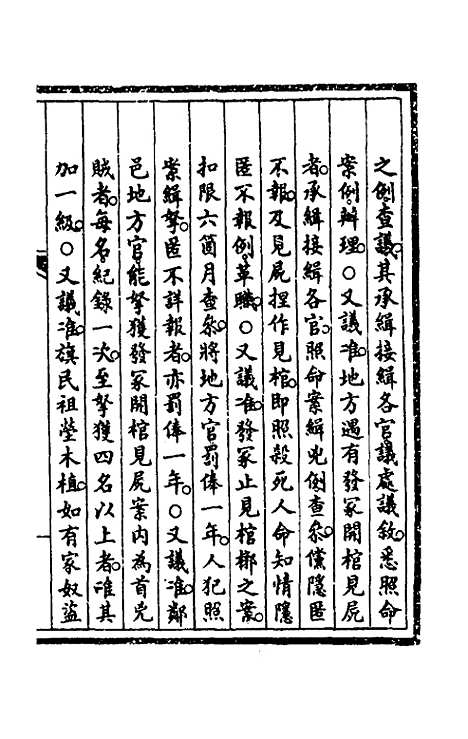 之例。查議。其承緝接緝各官議處議敘。悉照命
案例。辦理。○又議准。地方遇有發冢開棺見屍
者。承緝接緝各官。照命案緝兇例查叅。儻隱匿
不報。及見屍捏作見棺。即照殺死人命知情隱
匿不報例。革職。○又議准。發冢止見棺槨之案。
扣限六箇月查叅。將地方官罰俸一年。人犯照
案緝拏。匿不詳報者。亦罰俸一年。○又議准。鄰
邑地方官。能拏獲發冢開棺見屍案內為首兇
賊者。每名。紀錄一次。至拏獲四名以上者。准其
加一級。○又議准。旗民祖塋木植。如有家奴盜